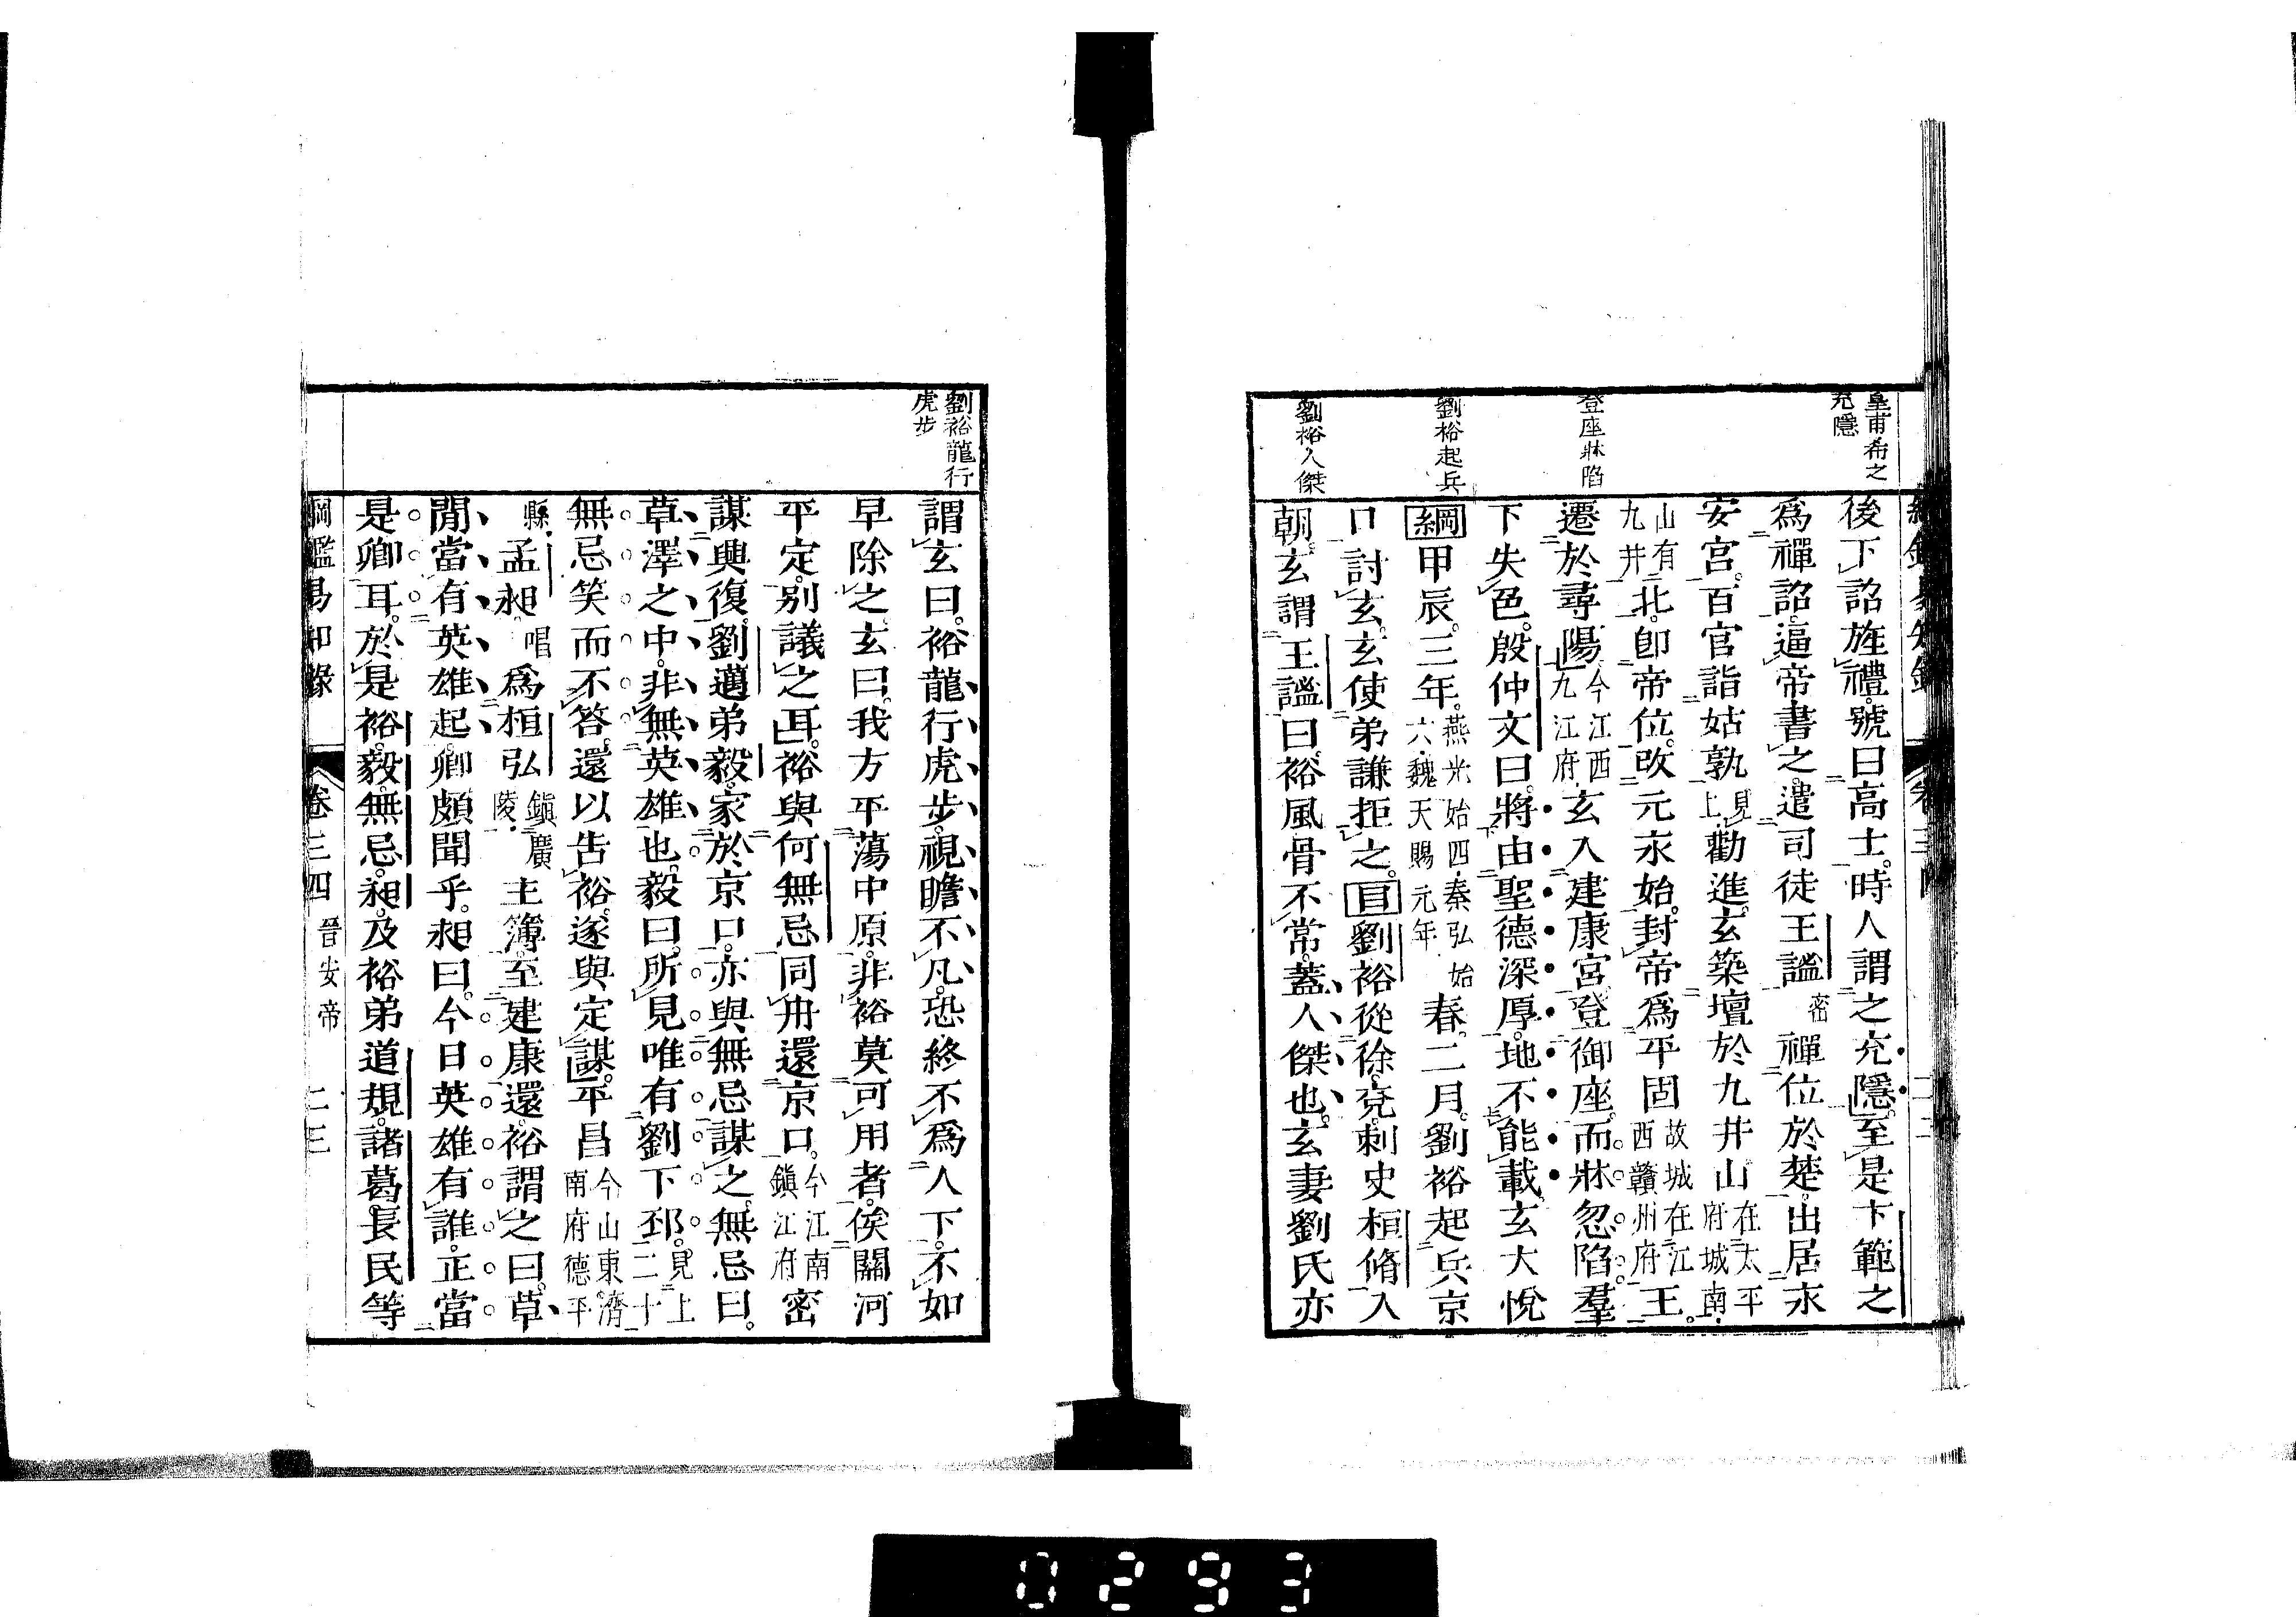 皇甫希之
充隱
登座牀陷
劉裕起兵
劉裕人傑
後下詔旌禮。號曰高士。時人謂之充隱。至是卞範之
爲禪詔。逼帝書之。遣司徒王謐密禪位於楚。出居永
安宮。百官詣姑孰見上勸進。玄築壇於九井山在太平府城南山有
九井北。卽帝位。改元永始。封帝爲平固故城在江西贛州府王。
遷於尋陽今江西九江府玄入建康宮。登御座。而牀忽陷。羣
下失色。殷仲文曰。將由聖德深厚。地不能載。玄大悅
綱甲辰。三年。燕光始四。秦弘始六。魏天賜元年春。二月。劉裕起兵京
口討玄。玄使弟謙拒之。目劉裕從徐兗刺史桓脩入
朝。玄謂王謐曰。裕風骨不常。蓋人傑也。玄妻劉氏亦
劉裕龍行
虎步
謂玄曰。裕龍行虎步。視瞻不凡。恐終不爲人下。不如
早除之。玄曰。我方平蕩中原。非裕莫可用者。俟關河
平定。別議之耳。裕與何無忌同舟還京口。今江南鎭江府密
謀興復。劉邁弟毅。家於京口。亦與無忌謀之。無忌曰。
草澤之中。非無英雄也。毅曰。所見唯有劉下邳。見上二十
無忌笑而不答。還以告裕。遂與定謀。平昌今山東濟南府德平
縣孟昶。唱爲桓弘鎭廣陵主簿。至建康還。裕謂之曰。草
閒當有英雄起。卿頗聞乎。昶曰。今日英雄有誰。正當
是卿耳。於是裕。毅。無忌。昶。及裕弟道規。諸葛長民等
綱鑑易知錄 卷三四 晉安帝 二三